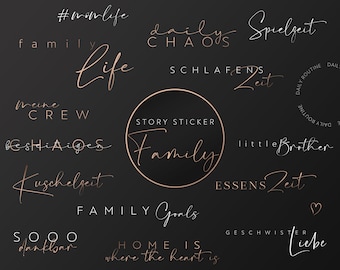 #momlife
daily
CHAOS
Spielzeit
family
Life
SCHLAFENS
Zeit
DAILY ROUTINE
DAILY ROUTINE
meine
CREW
STORY STICKER
Family
CHAOS
littleBrother
Kuschelzeit
ESSENS Zeit
FAMILY Goals
GESCHWISTER
Liebe
SOOO
dankbar
HOME IS
where the heart is